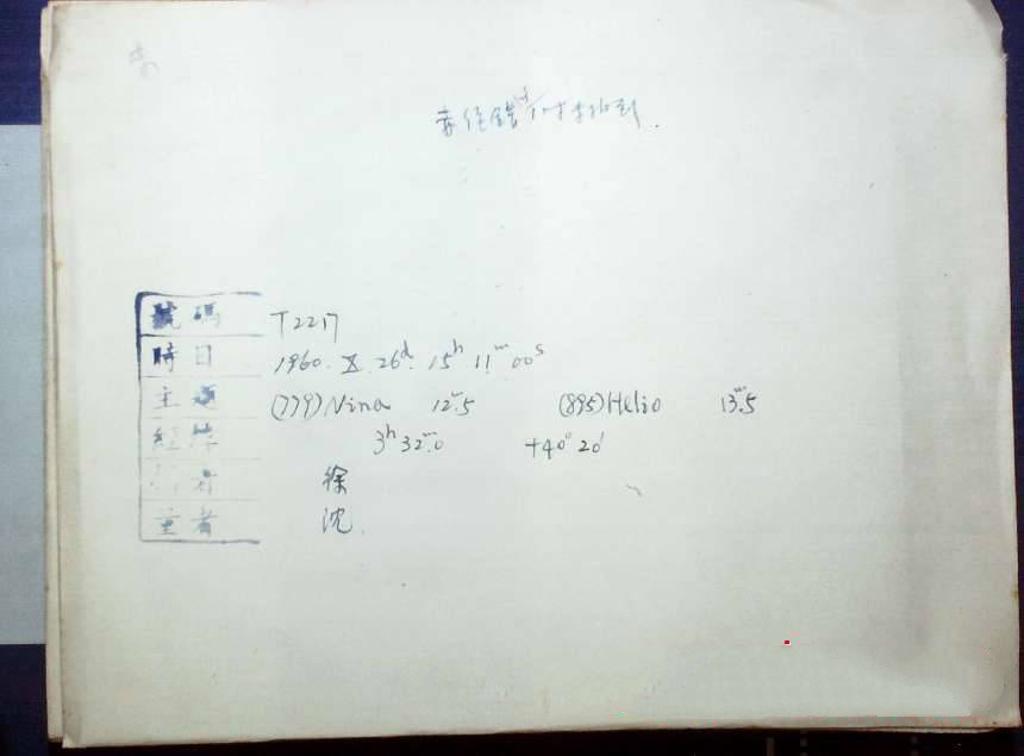 號碼 T2217
時日 1960. X. 26ᵈ. 15ʰ 11ᵐ 00ˢ
主題 (779) Nina 12ᵐ.5 (895) Helio 13ᵐ.5
經緯 3ʰ 32ᵐ.0 +40° 20′
徐
量者 沈.